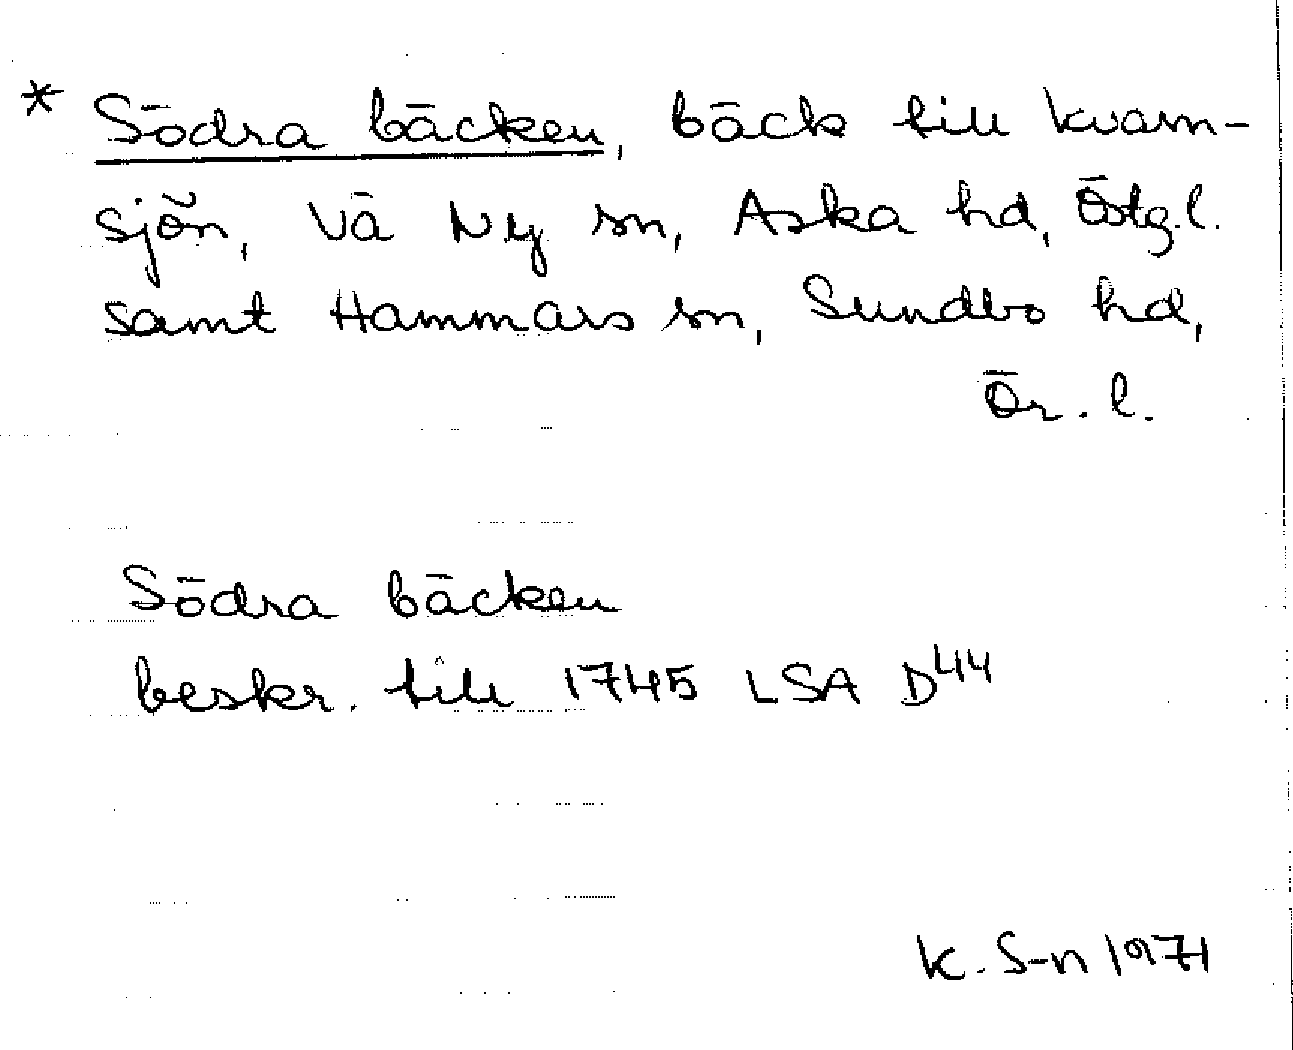 * Södra bäcken, bäck till Kvarn-
sjön, Vä Ny sn, Aska hd, Östg.l.
samt Hammars sn, Sundbo hd,
Ör. l.
Södra bäcken
beskr. till 1745 LSA D44
K. S-n 1971